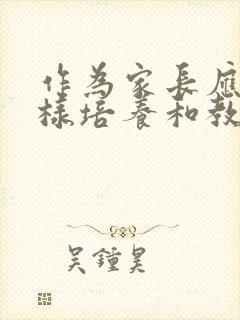 作為家長應
樣培養和教
吴鍾昊